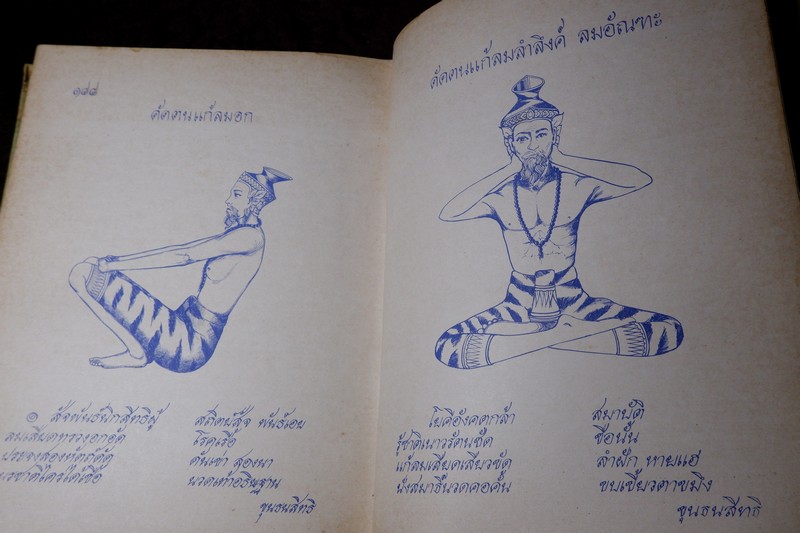 ๑๘๘
ดัดตนแก้ลมอก
๏ สัจพันธนักสิทธิผู้ สถิตบัสัจ พันธ์เอย
ลมเสียดทรวงอกอัด โรคเรื้อ
ดันเข่า สองนา
นวดเท้าอธิษฐาน
ขุนธนสิทธิ
ดัดตนแก้ลมลำลึงค์ ลมอัณฑะ
โยคีอังคตกล้า สมาบัติ
รู้ชาติเนาวรัตนชัด ชื่อนั้น
แก้ลมเสียดเสียวขัด ลำฝัก หายแฮ
นั่งสมาธินวดคอคั้น ขบเขี้ยวตาขมึง
ขุนธนสิทธิ